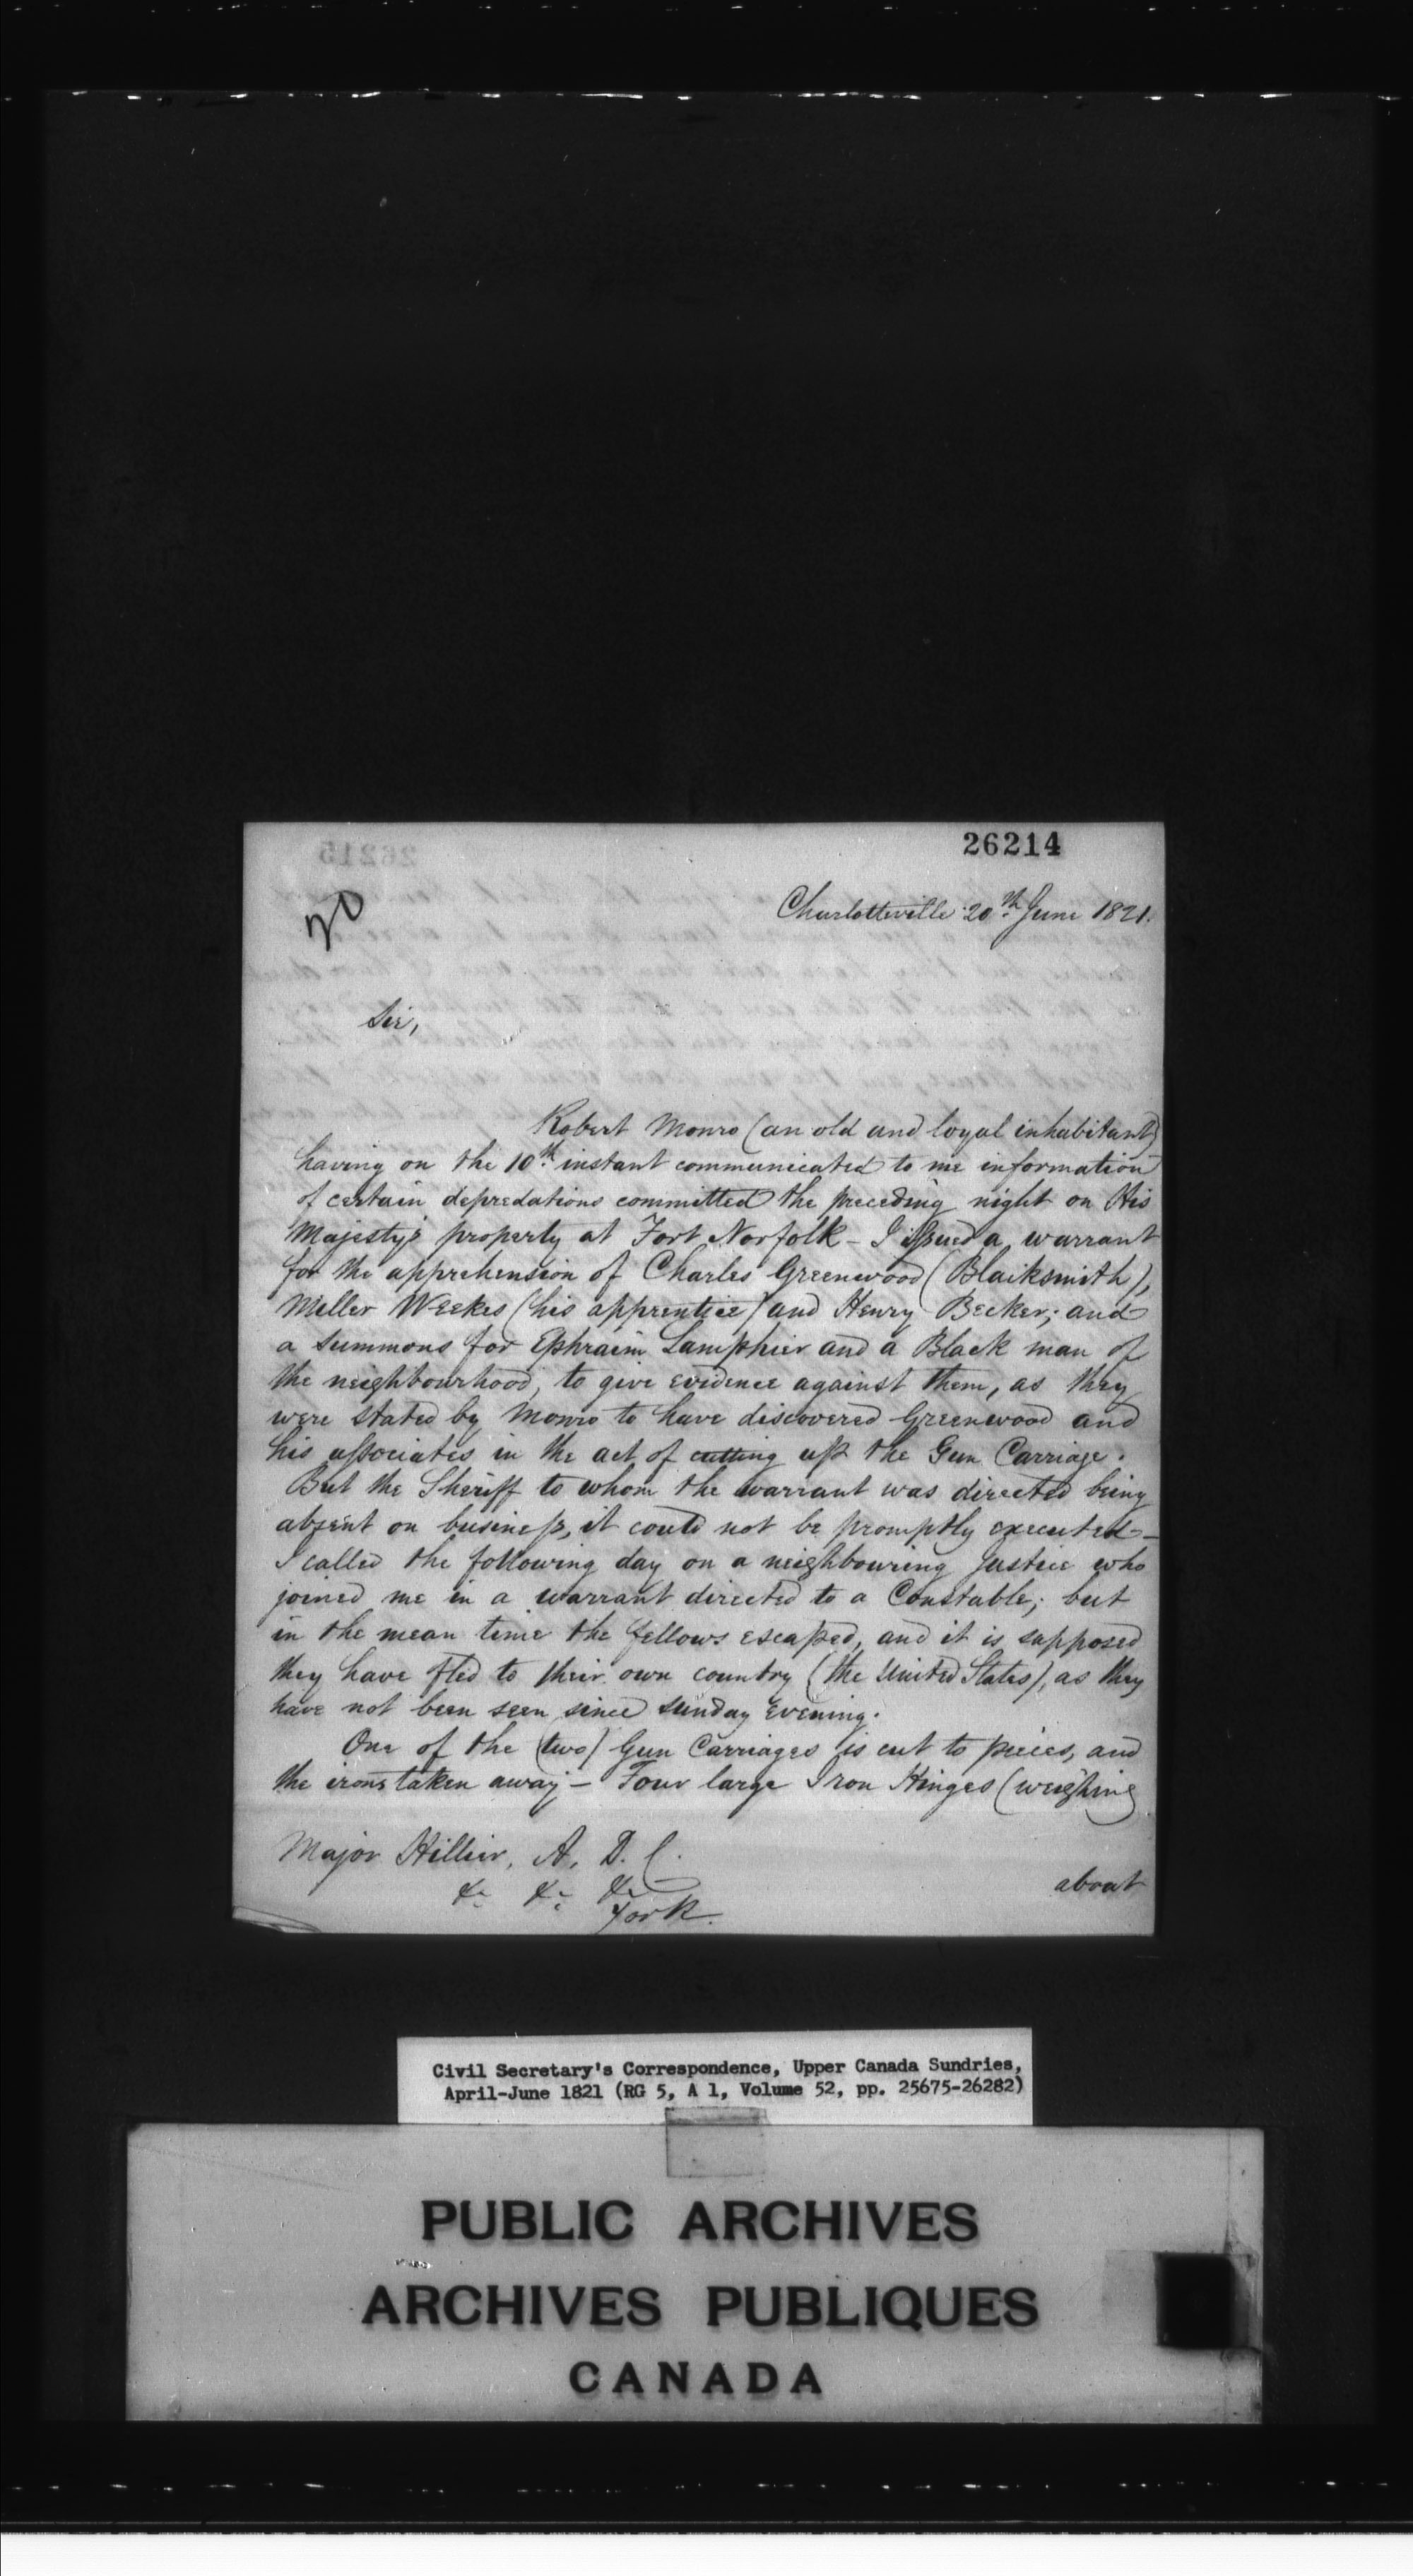 26214
20
Charlotteville 20th June 1821.
Sir,
Robert Monro (an old and loyal inhabitant)
having on the 10th instant communicated to me information
of certain depredations committed the preceding night on His
Majesty's property at Fort Norfolk - I issued a warrant
for the apprehension of Charles Greenwood (Blacksmith),
Meller Weekes (his apprentice) and Henry Becker; and
a summons for Ephraim Lamphier and a Black man of
the neighbourhood, to give evidence against them, as they
were stated by Monro to have discovered Greenwood and
his associates in the act of cutting up the Gun Carriage.
But the Sheriff to whom the warrant was directed being
absent on business, it could not be promptly executed -
I called the following day on a neighbouring Justice who
joined me in a warrant directed to a Constable; but
in the mean time the fellows escaped, and it is supposed
they have fled to their own country (the United States), as they
have not been seen since Sunday Evening.
One of the (two) Gun Carriages is cut to pieces, and
the irons taken away - Four large Iron Hinges (weighing
Major Hillier, A. D. C.
&c &c &c
York.
about
Civil Secretary's Correspondence, Upper Canada Sundries,
April-June 1821 (RG 5, A 1, Volume 52, pp. 25675-26282)
PUBLIC ARCHIVES
ARCHIVES PUBLIQUES
CANADA